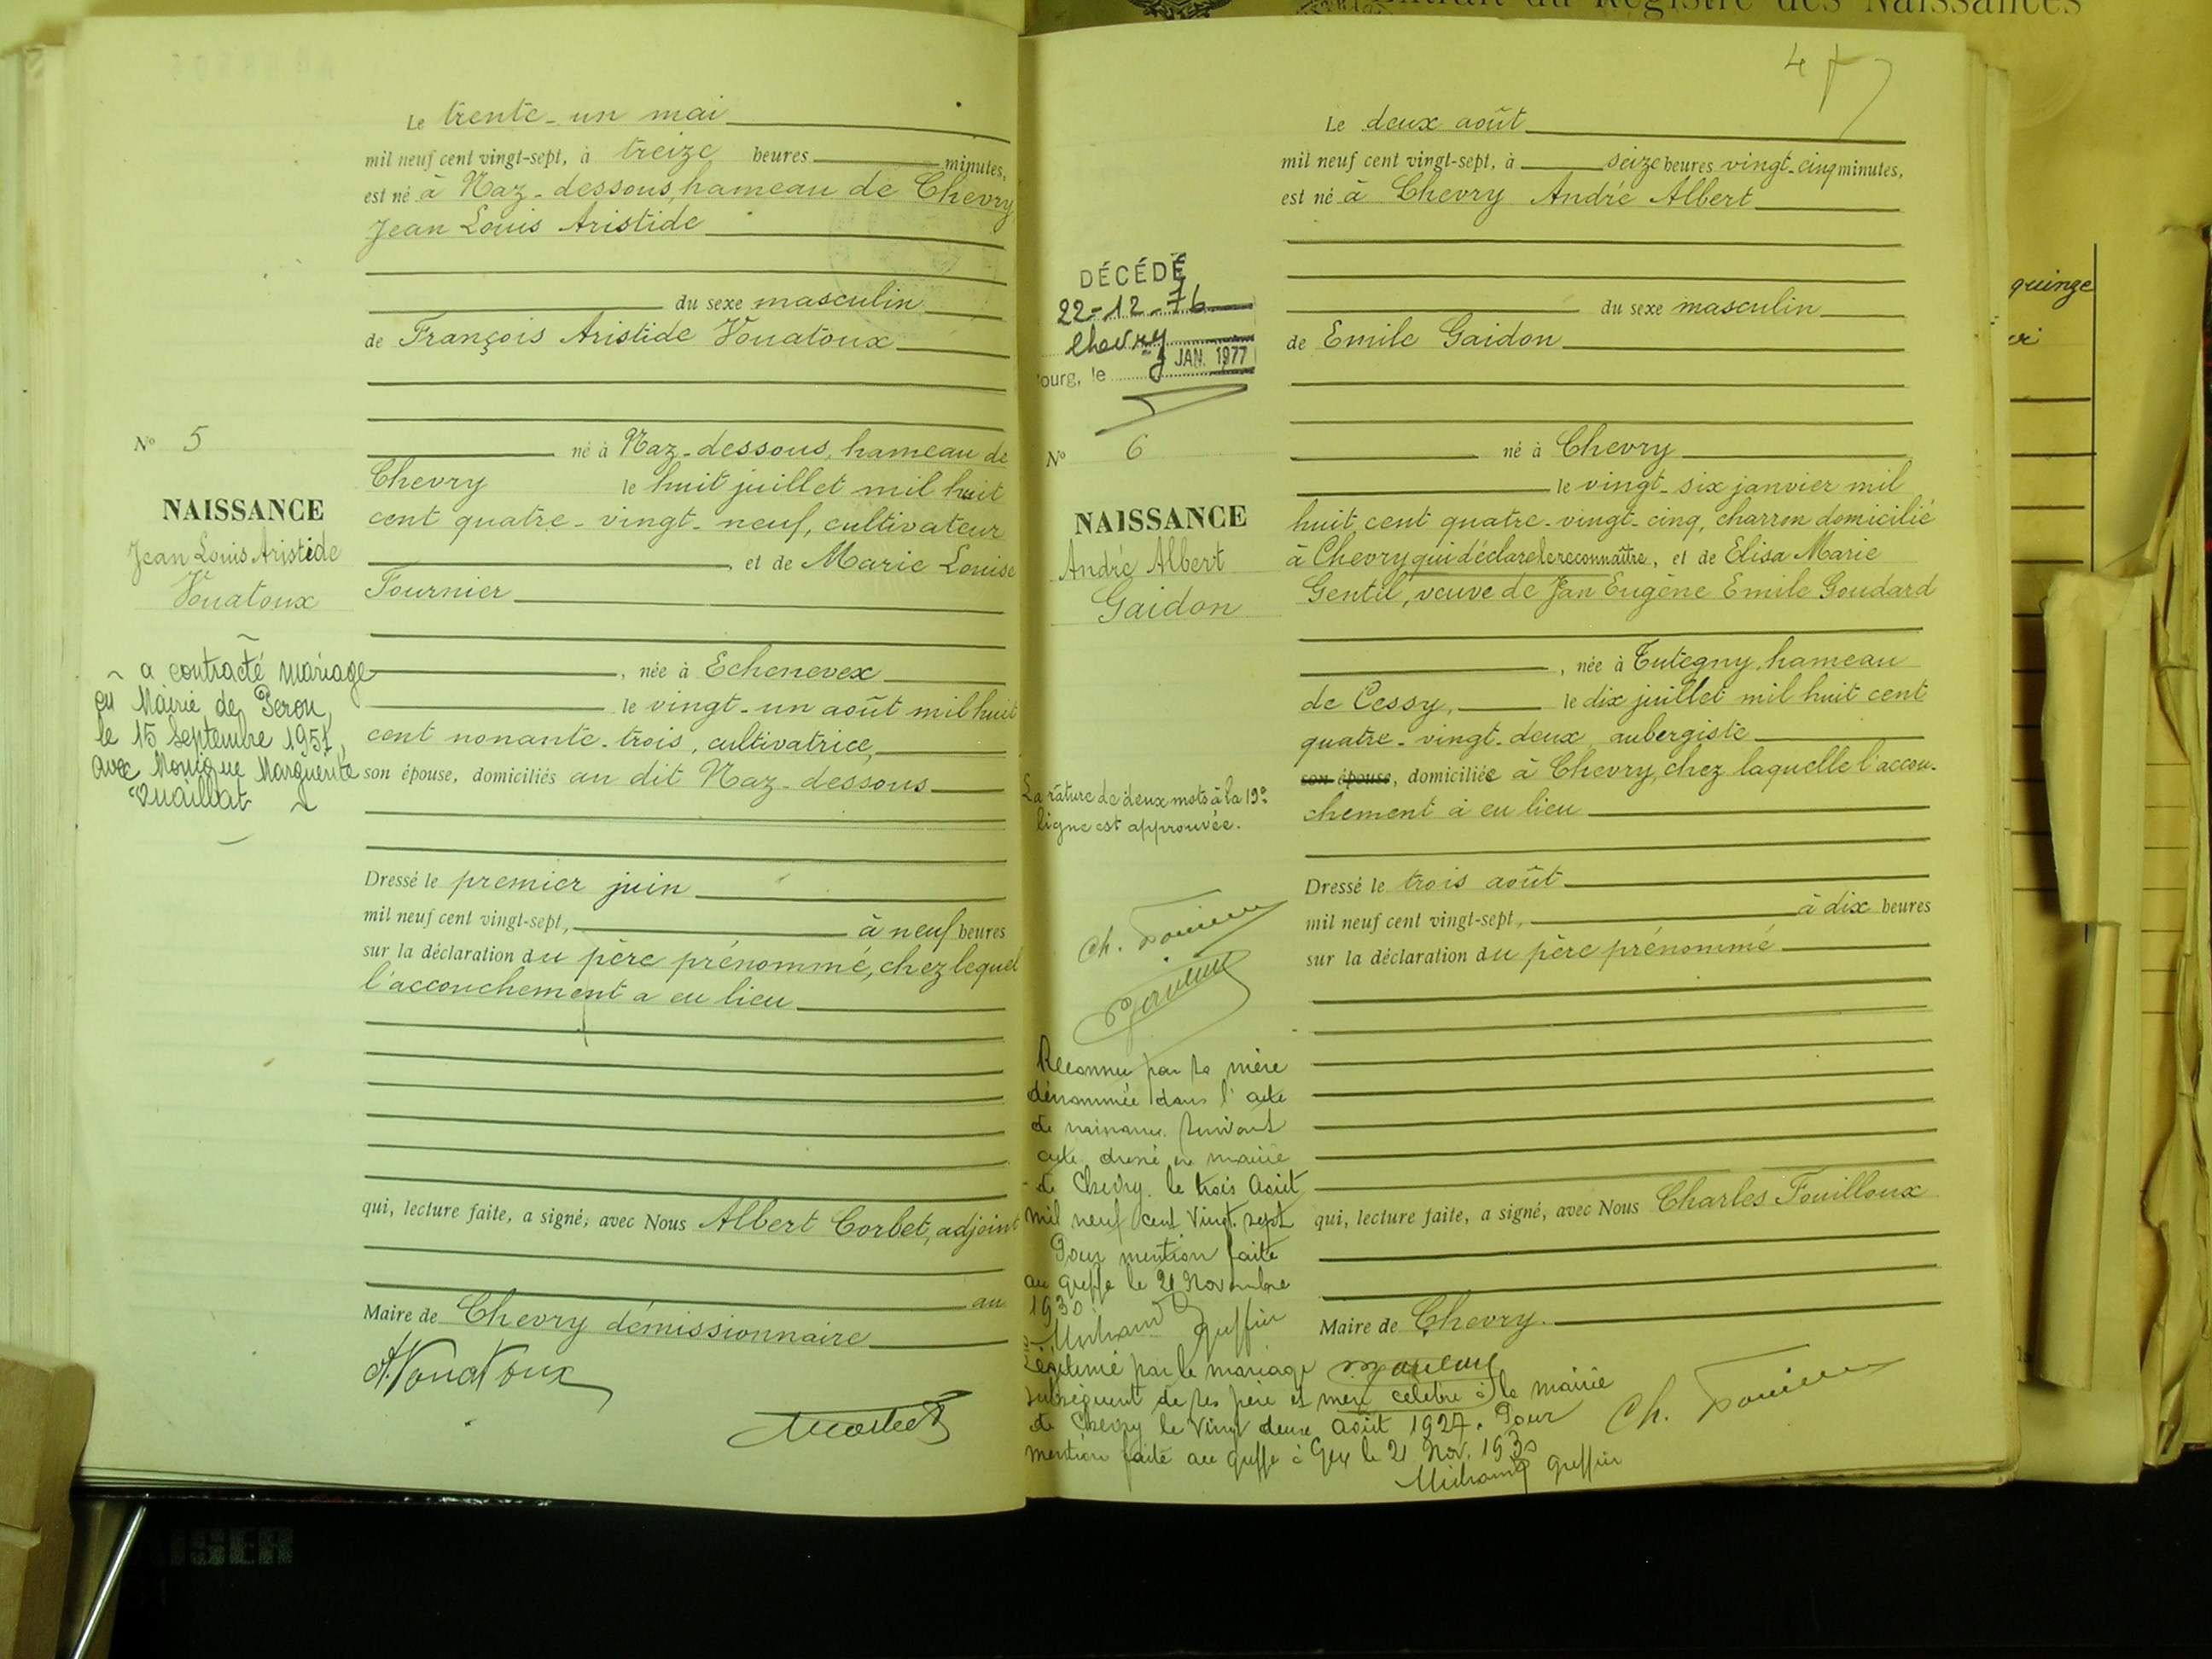 Extrait du Registre des Naissances
Le trente-un mai
mil neuf cent vingt-sept, à treize heures minutes,
est né à Naz-dessous, hameau de Chevry
Jean Louis Aristide
du sexe masculin
de François Aristide Vouatoux
né à Naz-dessous, hameau de
Chevry le huit juillet mil huit
cent quatre-vingt-neuf, cultivateur
et de Marie Louise
Fournier
, née à Echenevex
le vingt-un août mil huit
cent nonante-trois, cultivatrice,
son épouse, domiciliés au dit Naz-dessous
Dressé le premier juin
mil neuf cent vingt-sept, à neuf heures
sur la déclaration du père prénommé, chez lequel
l'accouchement a eu lieu
qui, lecture faite, a signé, avec Nous Albert Corbet, adjoint
au
Maire de Chevry démissionnaire
A. Vouatoux
No 5
NAISSANCE
Jean Louis Aristide
Vouatoux
a contracté mariage
en Mairie de Peron,
le 15 Septembre 1951,
avec Monique Marguerite
4
Le deux août
mil neuf cent vingt-sept, à seize heures vingt-cinq minutes,
est né à Chevry André Albert
du sexe masculin
de Emile Gaidon
né à Chevry
le vingt-six janvier mil
huit cent quatre-vingt-cinq, charron domicilié
à Chevry qui déclare le reconnaître, et de Elisa Marie
Gentil, veuve de Jean Eugène Emile Goudard
, née à Tutegny, hameau
de Cessy, le dix juillet mil huit cent
quatre-vingt-deux aubergiste
son épouse, domiciliée à Chevry, chez laquelle l'accou-
chement à eu lieu
Dressé le trois août
mil neuf cent vingt-sept, à dix heures
sur la déclaration du père prénommé
qui, lecture faite, a signé, avec Nous Charles Fouilloux
Maire de Chevry.
DÉCÉDÉ
22-12-76
Chevry
ourg, le JAN. 1977
No 6
NAISSANCE
André Albert
Gaidon
La rature de deux mots à la 19e
ligne est approuvée.
Ch.
Reconnu par la mère
dénommée dans l'acte
de naissance suivant
acte dressé en mairie
de Chevry le trois Août
mil neuf cent vingt sept
Pour mention faite
au greffe le 21 Novembre
1930.
greffier
Légitimé par le mariage
subséquent de ses père et mère célébré à la mairie
de Chevry le vingt deux Août 1927. Pour
mention faite au greffe à Gex le 21 Nov. 1930
greffier
Ch.
quinze